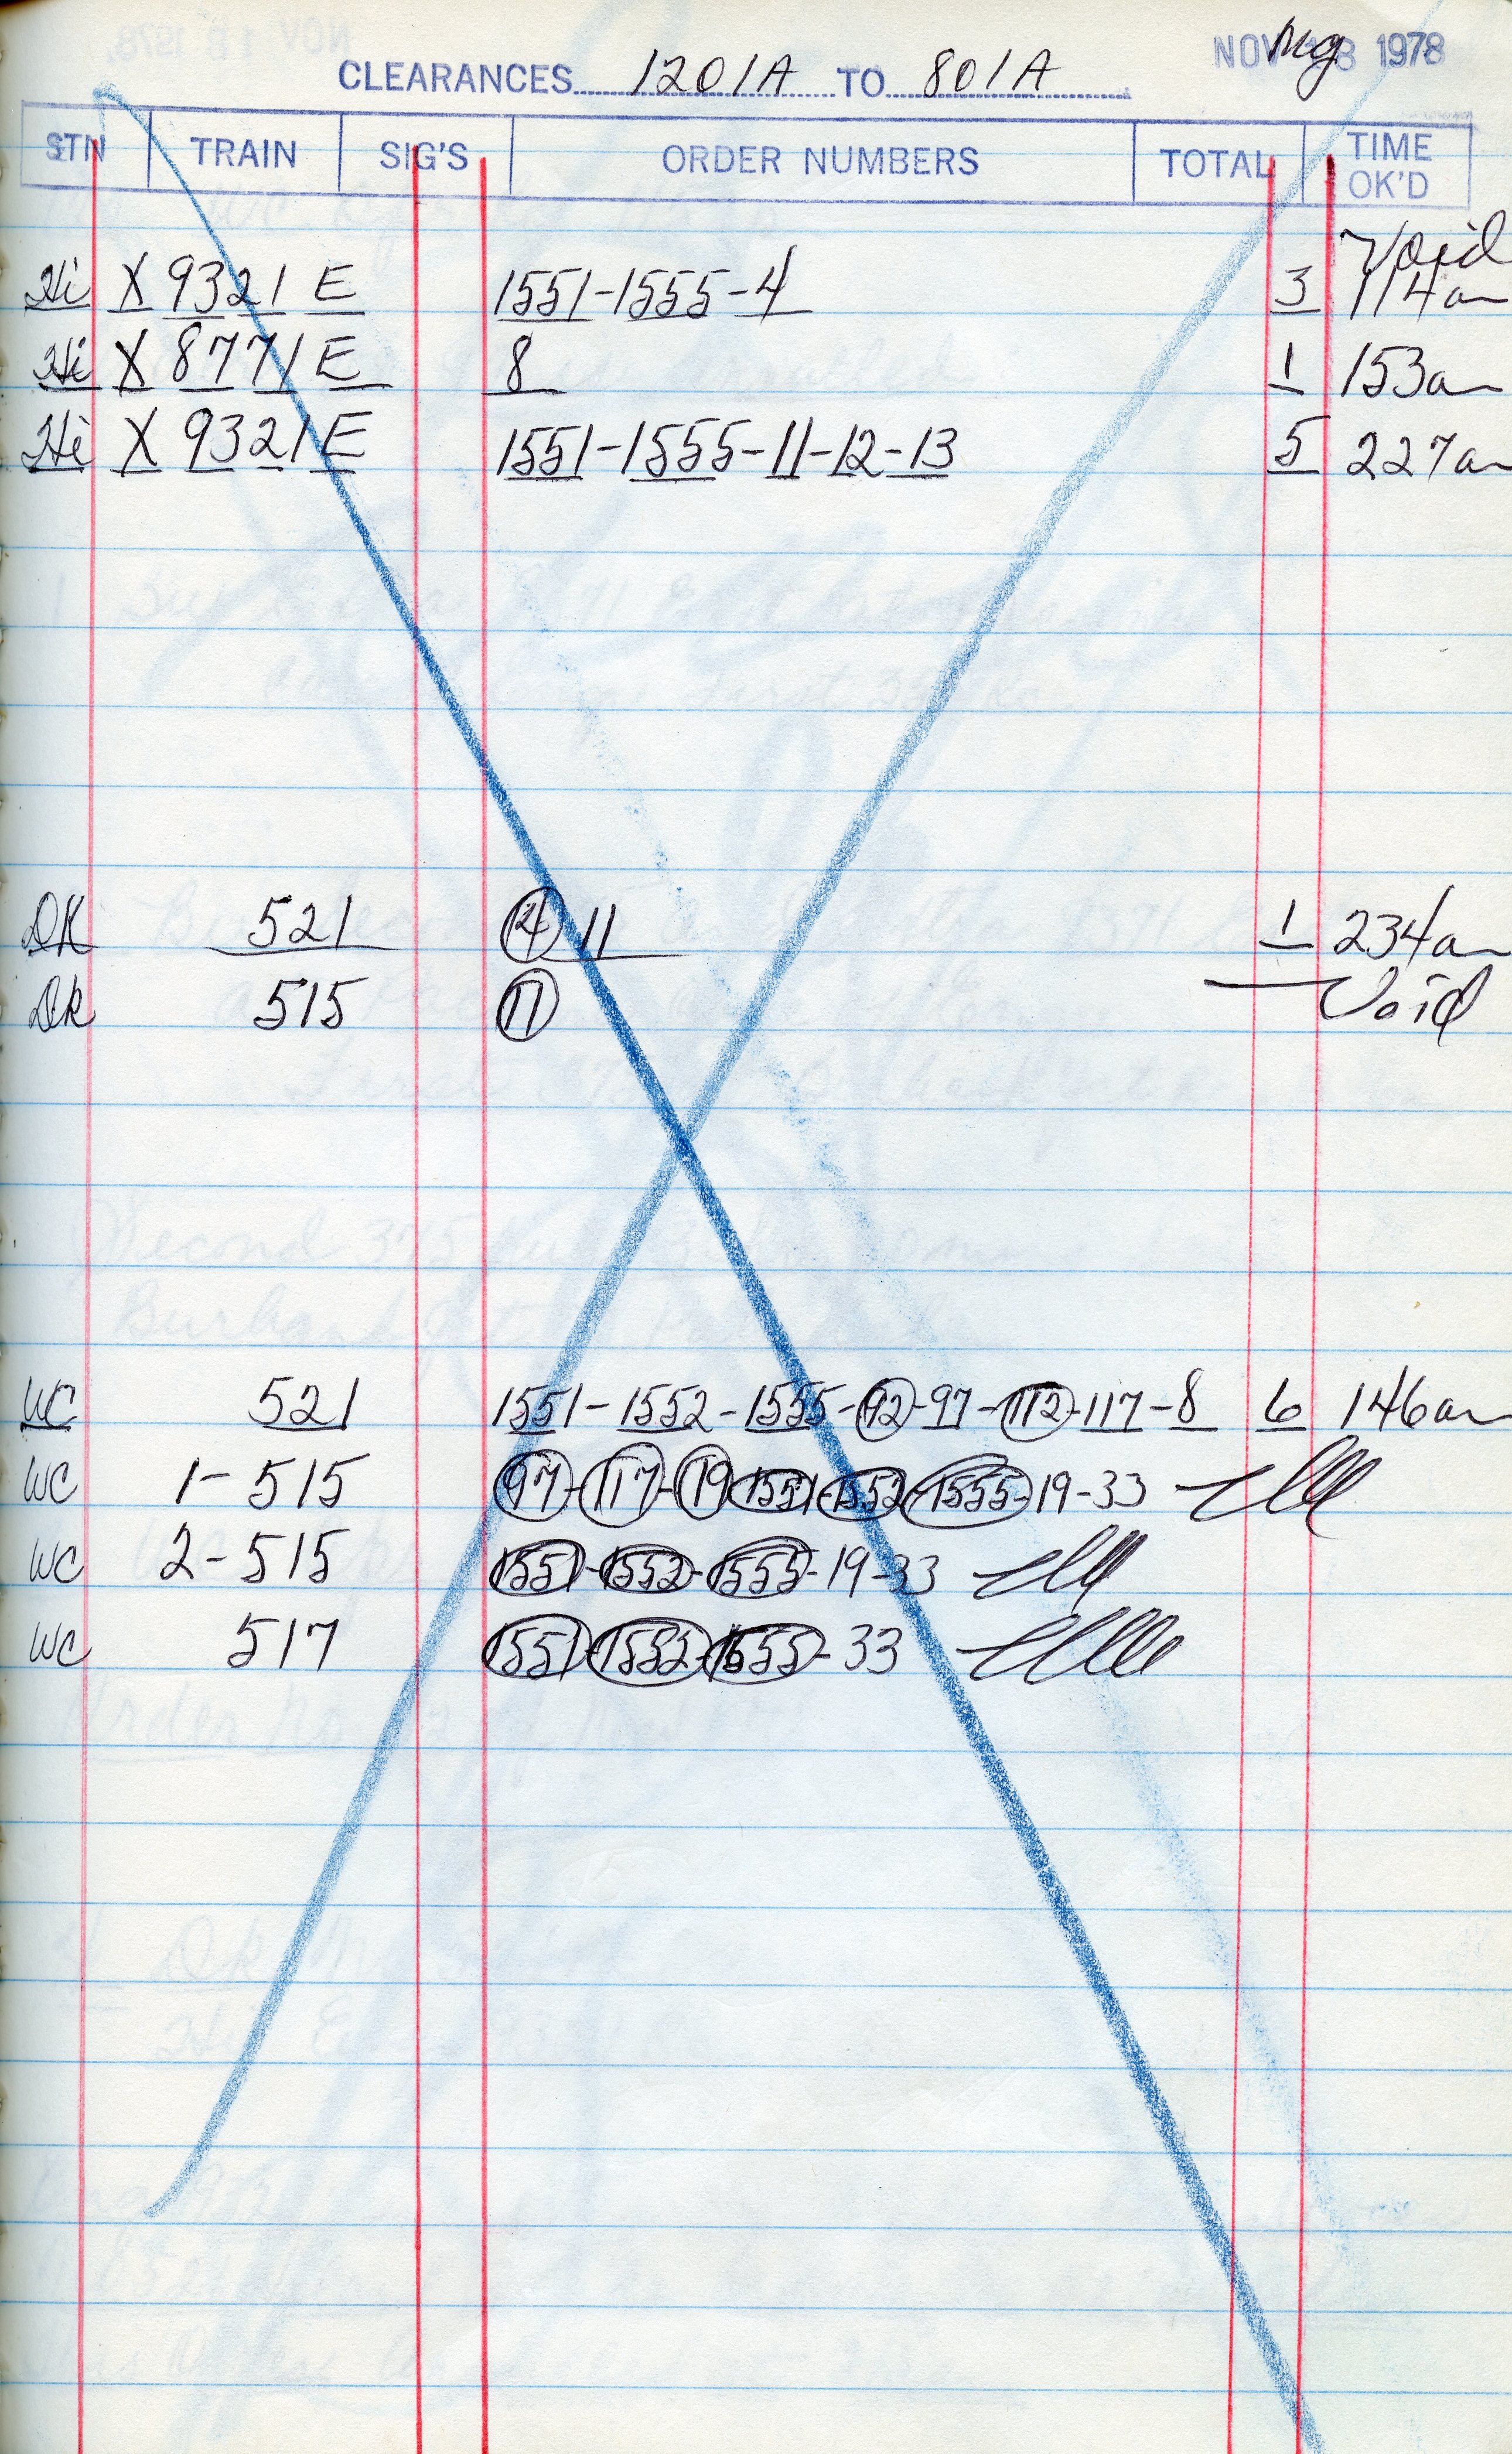 NOV 18 1978
CLEARANCES 1201A TO 801A
STN TRAIN SIG'S ORDER NUMBERS TOTAL TIME OK'D
Void
Hi X 9321 E 1551-1555-4 3 114am
Hi X 8771 E 8 1 153am
Hi X 9321 E 1551-1555-11-12-13 5 227am
DK 521 11 1 234am
DK 515 11 Void
WC 521 1551-1552-1555-92-97-112-117-8 6 146am
WC 1-515 97-117-19-1551-1552-1555-19-33
WC 2-515 1551-1552-1555-19-33
WC 517 1551-1552-1555-33